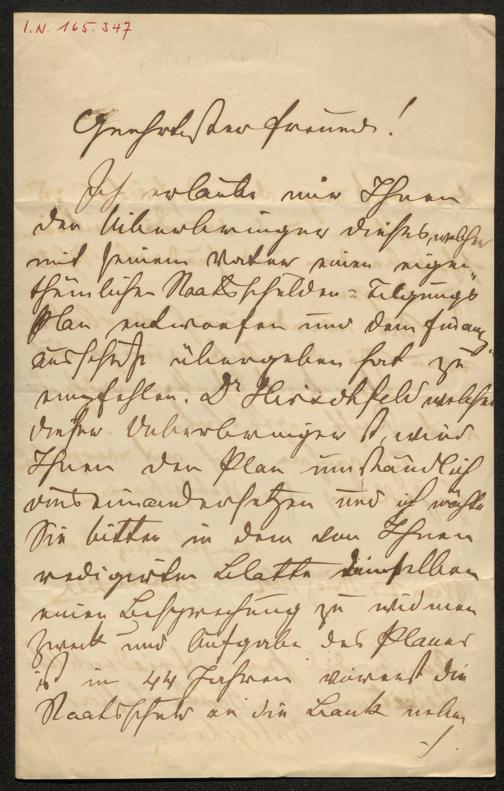 I.N. 165.347
Geehrtester Freund!
Ich erlaube mir Ihnen
den Ueberbringer dieses, welcher
mit seinem Vater einen eigen
thümlichen Staatsschulden-Tilgungs
Plan entworfen und dem Finanz
ausschuße übergeben hat zu
empfehlen. Dr Hirschfeld welcher
dieser Ueberbringer ist, wird
Ihnen den Plan umständlich
auseinandersetzen und ich möchte
Sie bitten in dem von Ihnen
redigirten Blatte demselben
einen Besprechung zu widmen
Zweck und Aufgabe des Planes
ist in 44 Jahren vorerst die
Staatsschuld an die Bank neben
./.